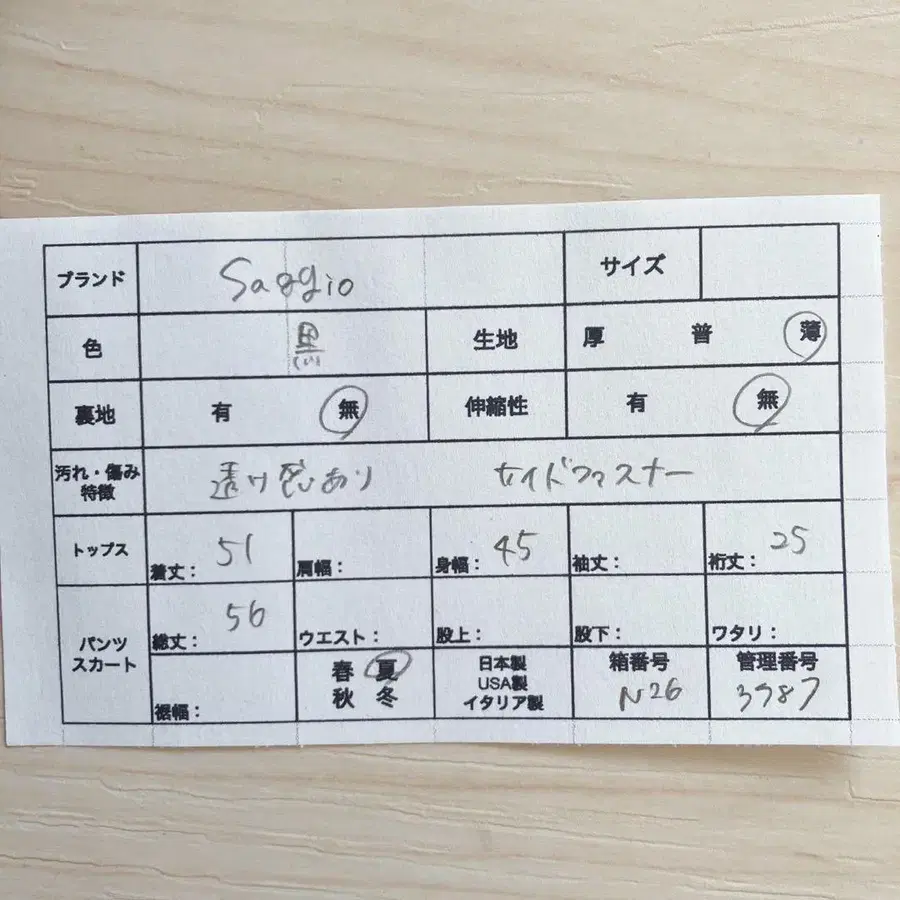 ブランド Saggio サイズ
色 黒 生地 厚 普 薄
裏地 有 無 伸縮性 有 無
汚れ・傷み
特徴 透け感あり サイドファスナー
トップス 着丈: 51 肩幅: 身幅: 45 袖丈: 裄丈: 25
パンツ
スカート 総丈: 56 ウエスト: 股上: 股下: ワタリ:
裾幅: 春 夏
秋 冬
日本製
USA製
イタリア製
箱番号
N26
管理番号
3987